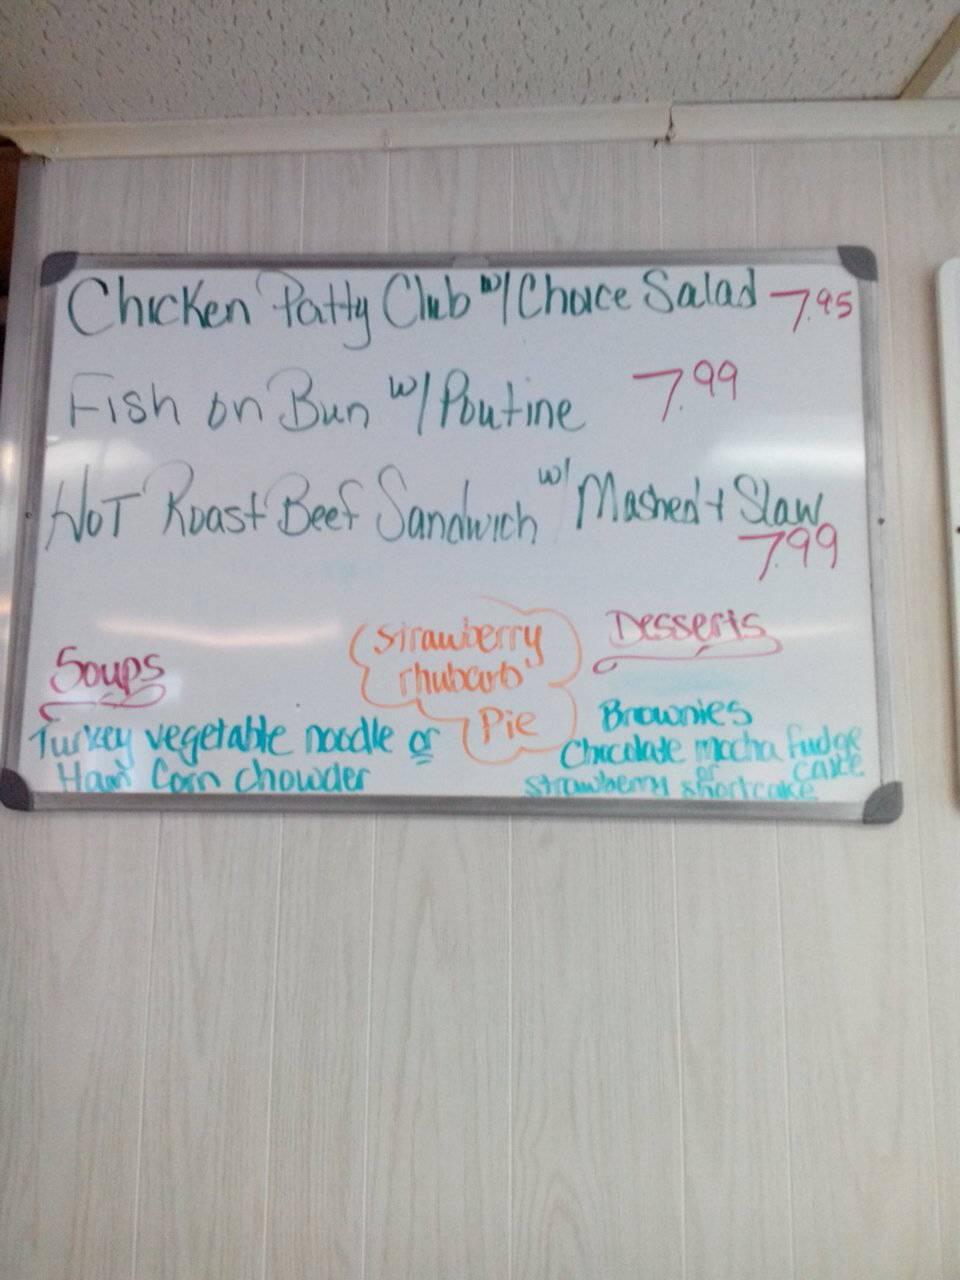 Chicken Patty Club w/ Choice Salad 7.95
Fish on Bun w/ Poutine 7.99
HOT Roast Beef Sandwich w/ Mashed + Slaw
7.99
Soups
Turkey vegetable noodle or
Ham Corn chowder
Strawberry
rhubarb
Pie
Desserts
Brownies
Chocolate mocha fudge
cake
or
strawberry shortcake